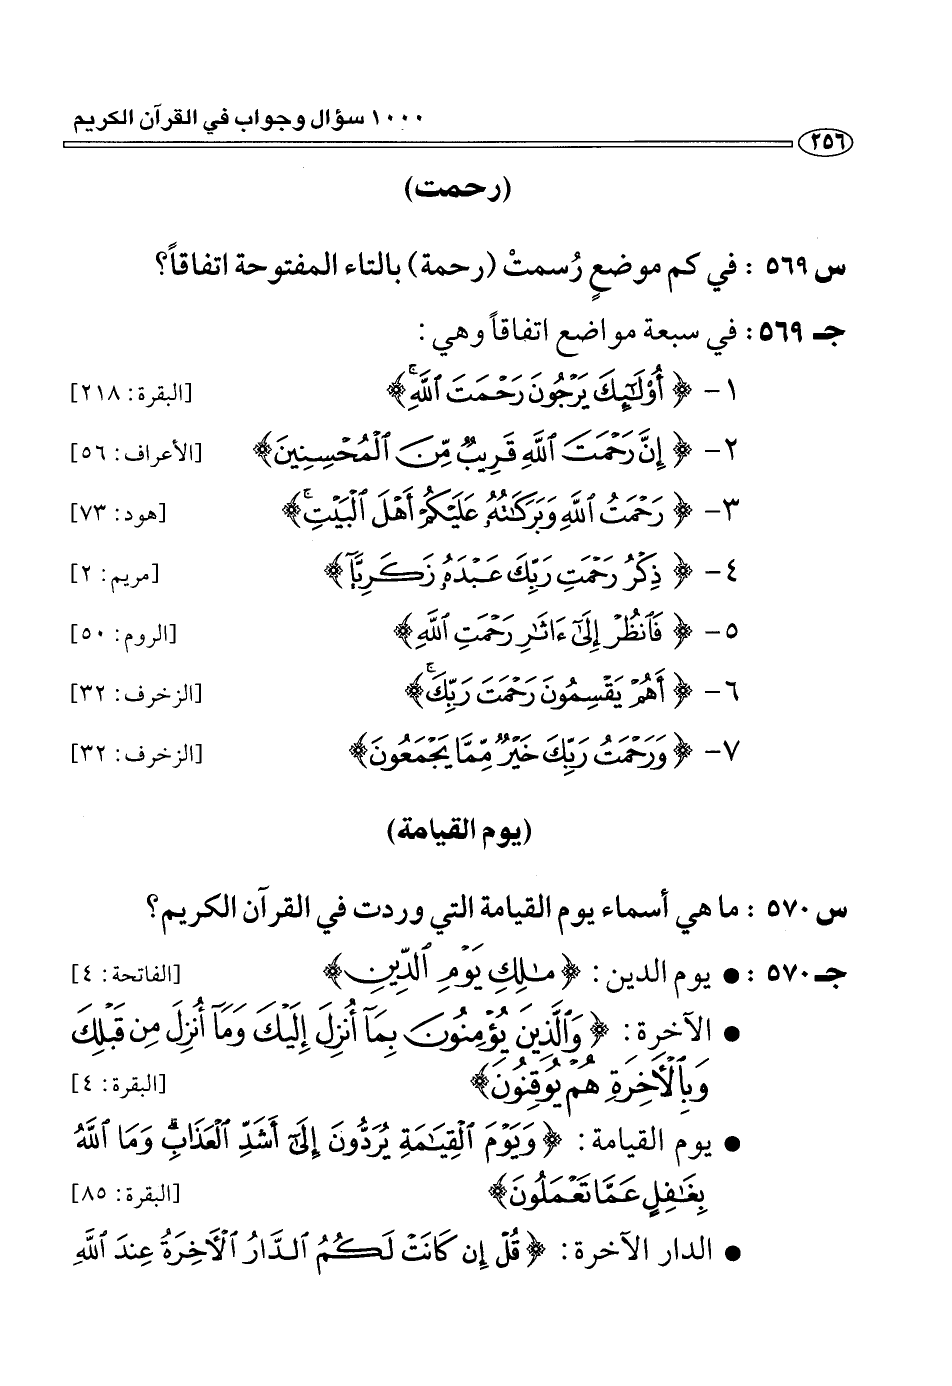 ١٠٠٠ سؤال وجواب في القرآن الكريم
٢٥٦
(رحمت)
س ٥٦٩ : في كم موضعٍ رُسمتْ (رحمة) بالتاء المفتوحة اتفاقاً؟
جـ ٥٦٩ : في سبعة مواضع اتفاقاً وهي :
١- ﴿ أُوْلَٰٓئِكَ يَرْجُونَ رَحْمَتَ ٱللَّهِۚ ﴾ [البقرة: ٢١٨]
٢- ﴿ إِنَّ رَحْمَتَ ٱللَّهِ قَرِيبٌ مِّنَ ٱلْمُحْسِنِينَ ﴾ [الأعراف: ٥٦]
٣- ﴿ رَحْمَتُ ٱللَّهِ وَبَرَكَٰتُهُۥ عَلَيْكُمْ أَهْلَ ٱلْبَيْتِۚ ﴾ [هود: ٧٣]
٤- ﴿ ذِكْرُ رَحْمَتِ رَبِّكَ عَبْدَهُۥ زَكَرِيَّآ ﴾ [مريم: ٢]
٥- ﴿ فَٱنظُرْ إِلَىٰٓ ءَاثَٰرِ رَحْمَتِ ٱللَّهِ ﴾ [الروم: ٥٠]
٦- ﴿ أَهُمْ يَقْسِمُونَ رَحْمَتَ رَبِّكَۚ ﴾ [الزخرف: ٣٢]
٧- ﴿ وَرَحْمَتُ رَبِّكَ خَيْرٌ مِّمَّا يَجْمَعُونَ ﴾ [الزخرف: ٣٢]
(يوم القيامة)
س ٥٧٠ : ما هي أسماء يوم القيامة التي وردت في القرآن الكريم؟
جـ ٥٧٠ : ● يوم الدين : ﴿ مَٰلِكِ يَوْمِ ٱلدِّينِ ﴾ [الفاتحة: ٤]
● الآخرة : ﴿ وَٱلَّذِينَ يُؤْمِنُونَ بِمَآ أُنزِلَ إِلَيْكَ وَمَآ أُنزِلَ مِن قَبْلِكَ
وَبِٱلْأَخِرَةِ هُمْ يُوقِنُونَ ﴾ [البقرة: ٤]
● يوم القيامة : ﴿ وَيَوْمَ ٱلْقِيَٰمَةِ يُرَدُّونَ إِلَىٰٓ أَشَدِّ ٱلْعَذَابِۗ وَمَا ٱللَّهُ
بِغَٰفِلٍ عَمَّا تَعْمَلُونَ ﴾ [البقرة: ٨٥]
● الدار الآخرة : ﴿ قُلْ إِن كَانَتْ لَكُمُ ٱلدَّارُ ٱلْأَخِرَةُ عِندَ ٱللَّهِ